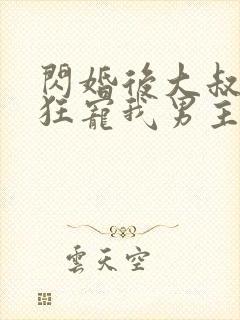 閃婚後大叔
狂寵我男主
雲天空